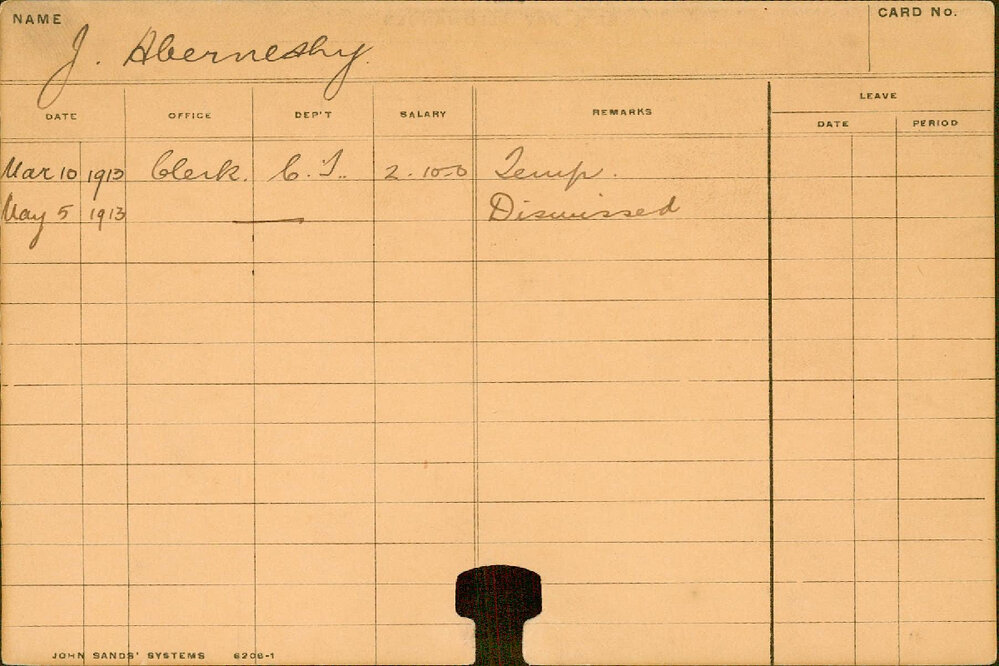 NAME
CARD No.
J. Abernethy.
LEAVE
DATE OFFICE DEP'T SALARY REMARKS
DATE PERIOD
Mar 10 1913 Clerk. C.T.. 2-10-0 Temp.
May 5 1913 — Dismissed
JOHN SANDS' SYSTEMS 6206-1